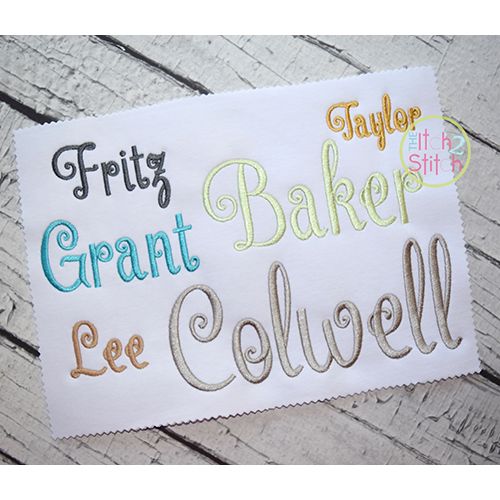 Taylor
Fritz
THE Itch 2 Stitch
Baker
Grant
Colwell
Lee